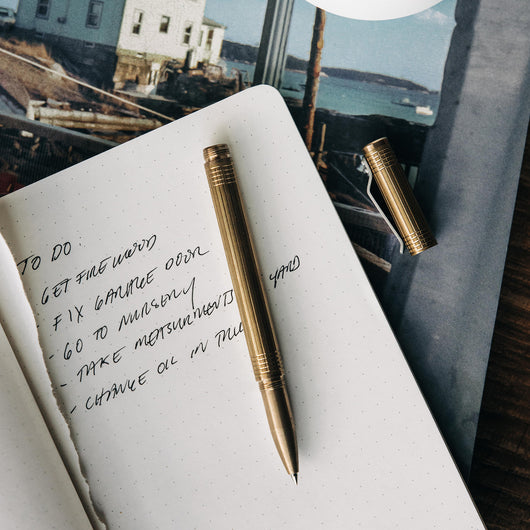 TO DO
- GET FIREWOOD
- FIX GARAGE DOOR
- GO TO NURSERY
- TAKE MEASURMENTS YARD
- CHANGE OIL IN